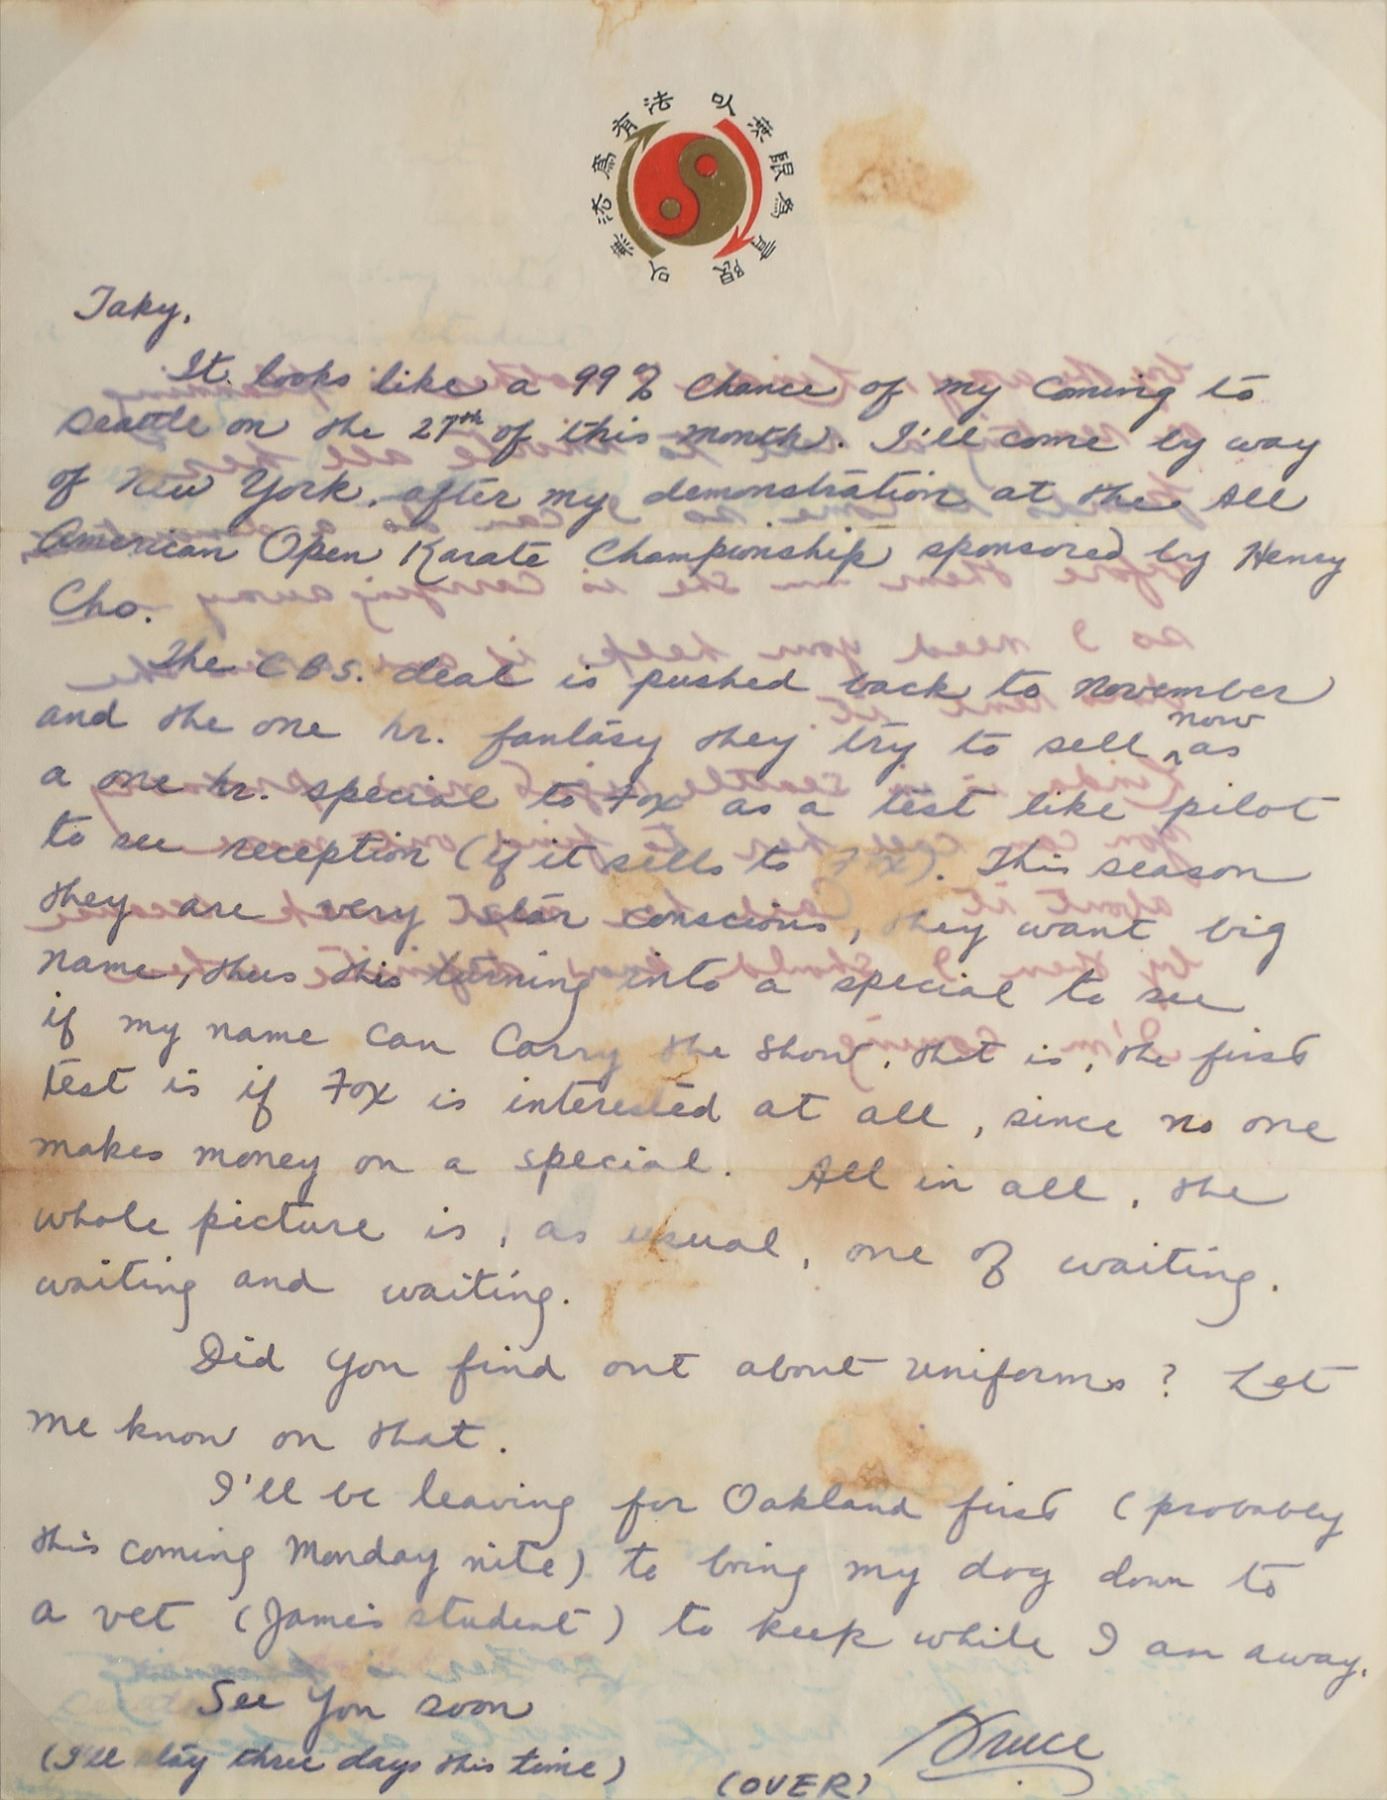 以無限為有限
以無法為有法
Taky,
It looks like a 99% chance of my coming to
Seattle on the 27th of this month. I'll come by way
of New York, after my demonstration at the All
American Open Karate Championship sponsored by Henry
Cho.
The CBS. deal is pushed back to November
and the one hr. fantasy they try to sell now as
a one hr. special to Fox as a test like pilot
to see reception (if it sells to Fox). This season
they are very star conscious, they want big
name, thus this turning into a special to see
if my name can carry the show, that is, the first
test is if Fox is interested at all, since no one
makes money on a special. All in all, the
whole picture is, as usual, one of waiting.
waiting and waiting.
Did you find out about uniforms? Let
me know on that.
I'll be leaving for Oakland first (probably
this coming Monday nite) to bring my dog down to
a vet (Jame's student) to keep while I am away.
See you soon
(I'll stay three days this time)
Bruce
(OVER)